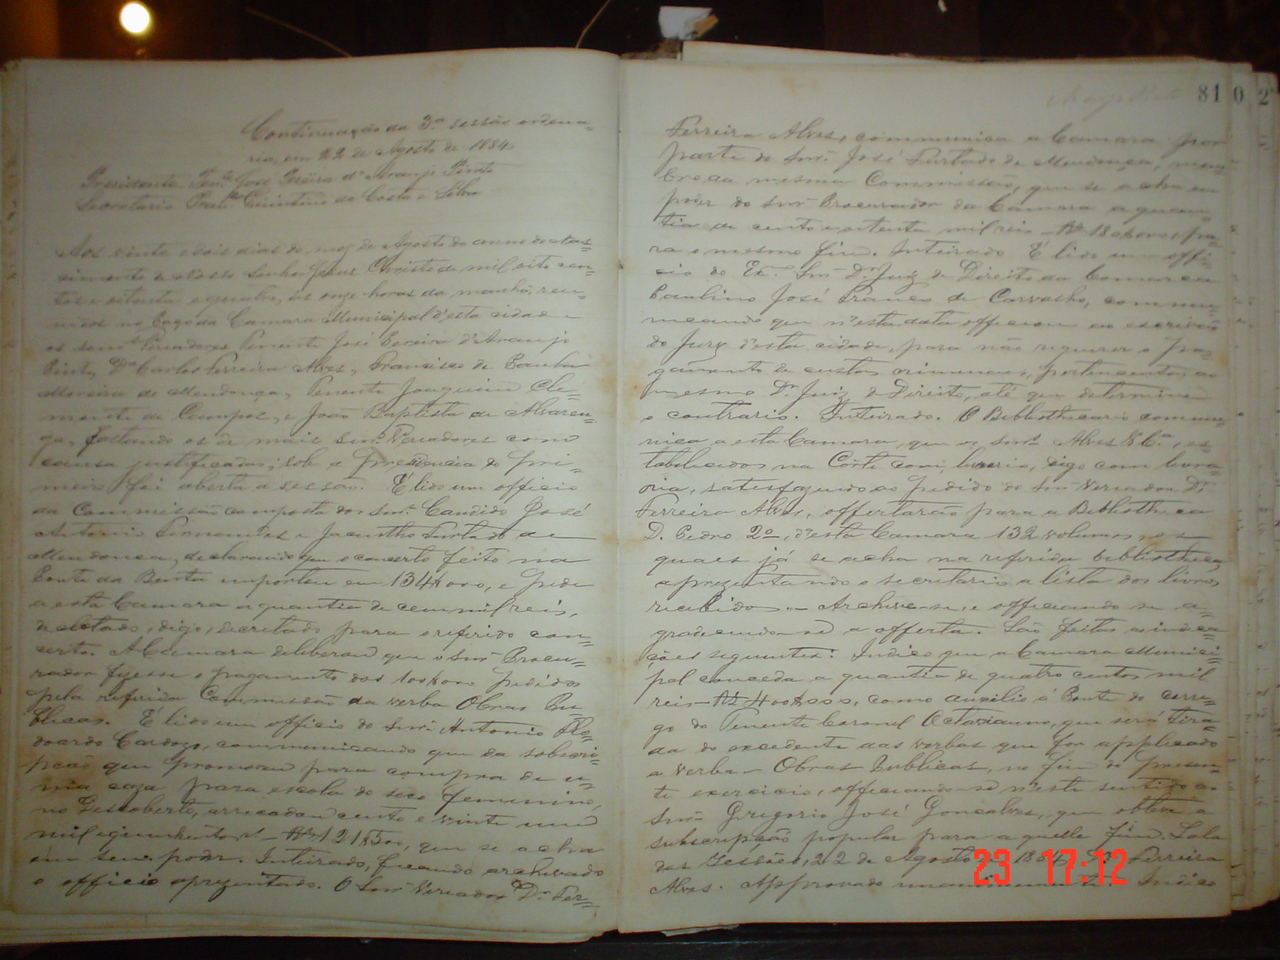 Continuação da 3ª sessão ordina=
ria, em 22 de Agosto de 1884
Presidente Tenᵉ José Pereira d'Araujo Pinto
Secretario Franᶜᵒ Quintino da Costa e Silva
Aos vinte e dois dias do mez de Agosto do anno do Nas=
cimento de Nosso Senhor Jesus Christo de mil oito cen=
tos e oitenta e quatro, ás onze horas da manhã, reu=
nidos no Paço da Camara Municipal d'esta cidade
os senrᵉˢ Vereadores Tenente José Pereira d'Araujo
Pinto, Dʳ Carlos Ferreira Alves, Francisco de Paula
Moreira de Mendonça, Tenente Joaquim Cle=
mente de Campos, e João Baptista de Alvaren=
ga, faltando os de mais senrᵉˢ Vereadores com
causa justificada; sob a presidencia do pri=
meiro foi aberta a sessão. É lido um officio
da Commissão composta dos Snrᵉˢ Candido José
Antonio e Jacintho Furtado de
Mendonça, declarando que o concerto feito na
Ponte da Benta importou em 134$000, e pede
a esta Camara a quantia de cem mil reis,
decletado, digo, decretado para o referido con=
certo. A Camara deliberou que o Snr Procu=
rador fizesse o pagamento dos 100$000 pedidos
pela referida Commissão da verba Obras Pu=
blicas. É lido um officio do Snr Antonio
Cardozo, communicando que da subscri=
pção que promoveu para compra de u=
ma caza para escola do sexo femenino,
no Descoberto, arrecadou cento e vinte um
mil e quinhentos rˢ - Rˢ 121$500, que se acha
em seu poder. Inteirado, ficando archivado
o officio aprezentado. O Snr Vereador Dʳ Fer=
81
Ferreira Alves, communica a Camara por
parte do Snr José Furtado de Mendonça, mem=
bro da mesma Commissão, que se acha em
poder do Snr Procurador da Camara a quan=
tia de cento e oitenta mil reis - Rˢ 180$000, pa=
ra o mesmo fim. Inteirado. É lido um offi=
cio do Exᵐᵒ Snr Dʳ Juiz de Direito da Comarca
Paulino José Franco de Carvalho, commu=
nicando que n'esta data officiou ao escrivão
do Jury d'esta cidade, para não requerer o pa=
gamento de custas criminaes, pertencentes ao
mesmo Dʳ Juiz de Direito, até que determine
o contrario. Inteirado. O Bibliothecario commu=
nica a esta Camara, que os Snrᵉˢ Alves & Cª, es=
tabelecidos na Côrte com, livraria, digo com livra=
ria, satisfazendo ao pedido do Snr Vereador Dʳ
Ferreira Alves, offertarão para a Bibliotheca
D. Pedro 2º, d'esta Camara 132 volumes, os
quaes já se acha na referida bibliotheca,
aprezentando o secretario a lista dos livros
recebidos. - Archive-se, e officiando se a=
gradecendo-se a offerta. São feitas as indica=
ções seguintes: Indico que a Camara Munici=
pal conceda a quantia de quatro centos mil
reis - Rˢ 400$000, como auxilio á Ponte do corre=
go do Tenente Coronel Octaviano, que será tira=
da do excedente das verbas que for applicado
a verba - Obras Publicas, no fim do presen=
te exercicio, officiando-se n'este sentido ao
Snr Gregorio José Gonçalves, que obteve a
subscripção popular para aquelle fim. Sala
das Sessões, 22 de Agosto 1884. Ferreira
Alves. Approvado unanimemente. Indico
23 17:12